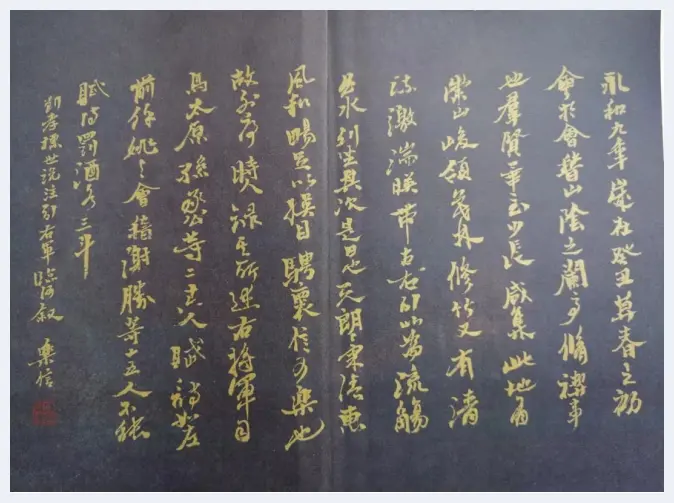 永和九年歲在癸丑暮春之初
會於會稽山陰之蘭亭脩禊事
也羣賢畢至少長咸集此地有
崇山峻領茂林修竹又有清
流激湍暎帶左右引以為流觴
曲水列坐其次是日也天朗氣清惠
風和暢足以娛目騁懷信可樂也
故列序時人錄其所述右將軍司
馬太原孫丞等二十六人賦詩如左
前餘姚令會稽謝勝等十五人不能
賦詩罰酒各三斗
劉孝標世說注引右軍臨河敘